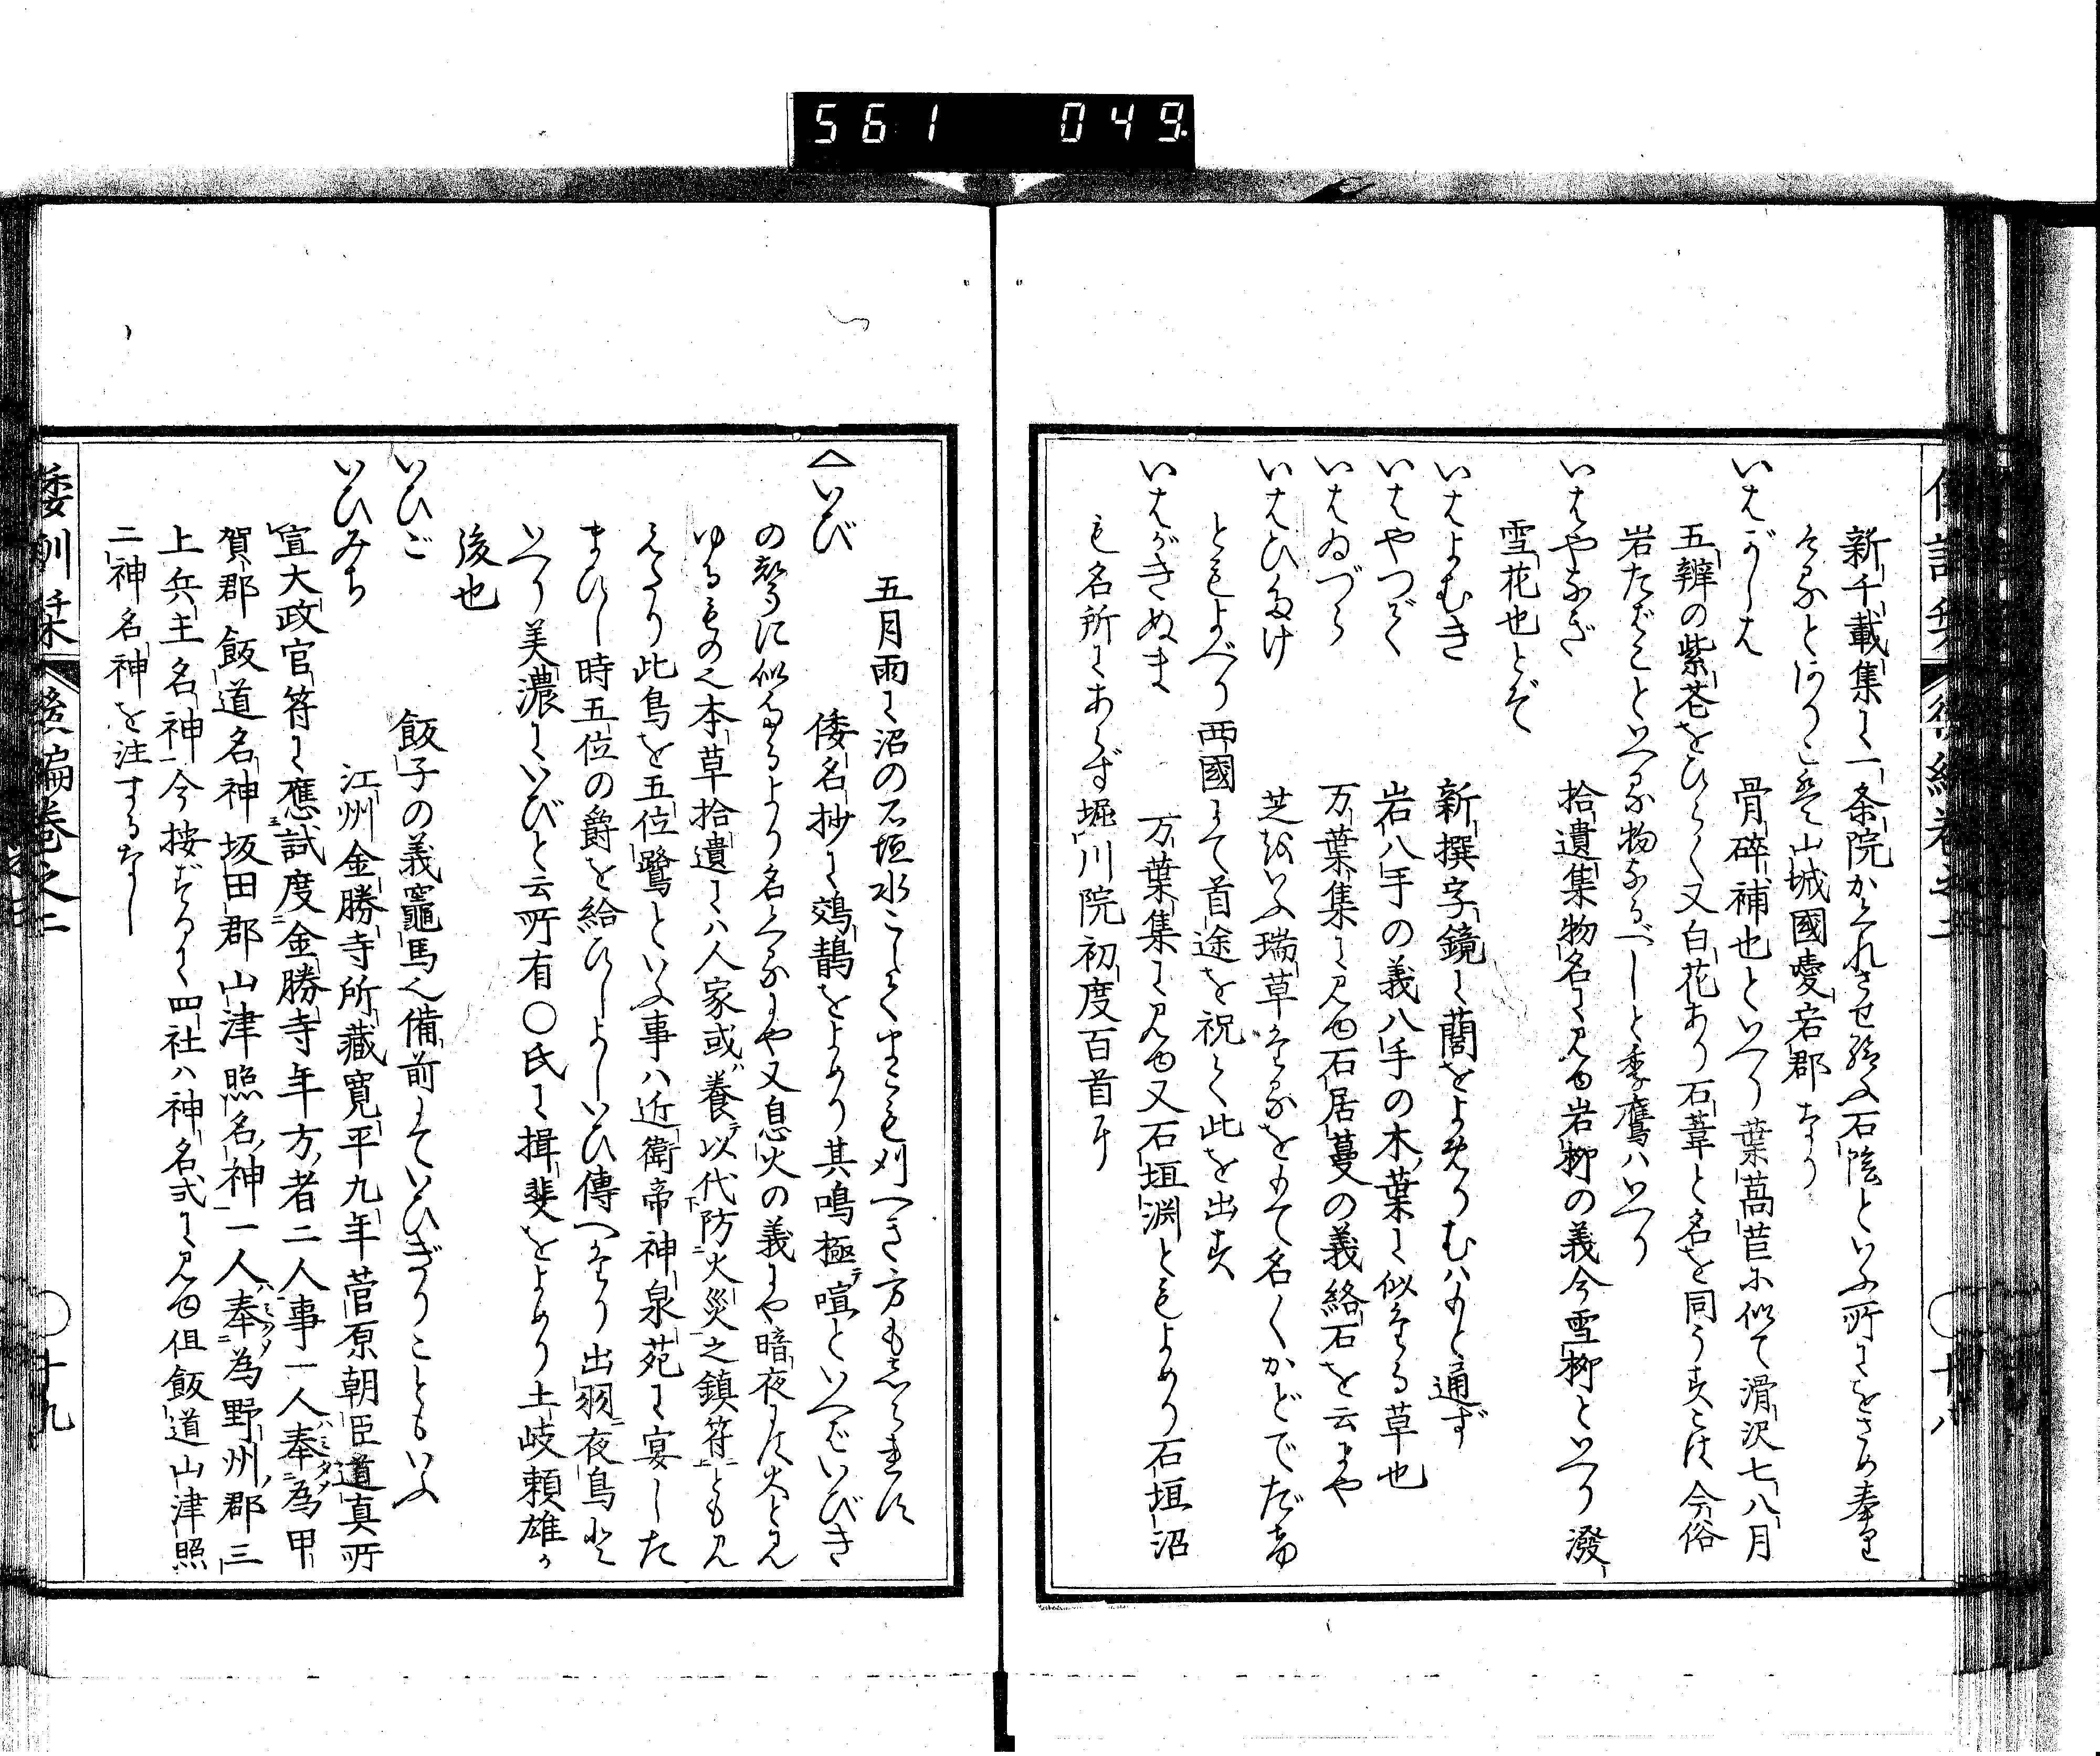 561 049
新千載集に一条院かくれさせ給ふ石陰といふ所にをさめ奉り
そみとりこは山城國愛宕郡なり
いはがしは 骨碎補也といへり葉萵苣に似て滑沢七八月
五辧の紫苍をひらく又白花あり石葦と名を同うすこは今俗
岩たばこといへる物なるべしと季鷹ハいへり
いはやなぎ 拾遺集物名に見ゆ岩柳の義今雪柳といへり溌
雪花也とぞ
いはよむき 新撰字鏡に藺をよめりむハもと通ず
いはやつで 岩八手の義八手の木葉に似たる草也
いはゐづら 万葉集に見ゆ石居蔓の義絡石を云にや
いはひたけ 芝をいふ瑞草なるをもて名くかどでだけ
ともよべり西國にて首途を祝とて此を出す
いはがきぬま 万葉集に見ゆ又石垣渕ともよめり石垣沼
も名所にあらず堀川院初度百首に
倭訓栞 後編巻之二 十八
五月雨に沼の石垣水こえてまこも刈へき方もしられす
へいび 倭名抄に鵁鶄をよめり其鳴極テ喧といへばいびき
の聲に似たるより名くるにや又息火の義にや暗夜には火と見
ゆるもの也本草拾遺にハ人家或ハ養テ以代防火災之鎮符ともみ
えたり此鳥を五位鷺といふ事ハ近衛帝神泉苑に宴した
まひし時五位の爵を給ひしよしいひ傳へたり出羽ニ夜鳥と
いへり美濃にいびと云所有〇氏に揖斐をよめり土岐頼雄か
後也
いひご 飯子の義竈馬也備前にていひぎりこともいふ
いひみち 江州金勝寺所藏寛平九年菅原朝臣道真所
宣大政官符に應試度金勝寺年方者二人事一人奉為甲
賀郡飯道名神坂田郡山津照名神一人奉為野州郡三
上兵主名神今按ずるに四社ハ神名式に見ゆ但飯道山津照
二神名神を注するなし
倭訓栞 後編巻之二 十九